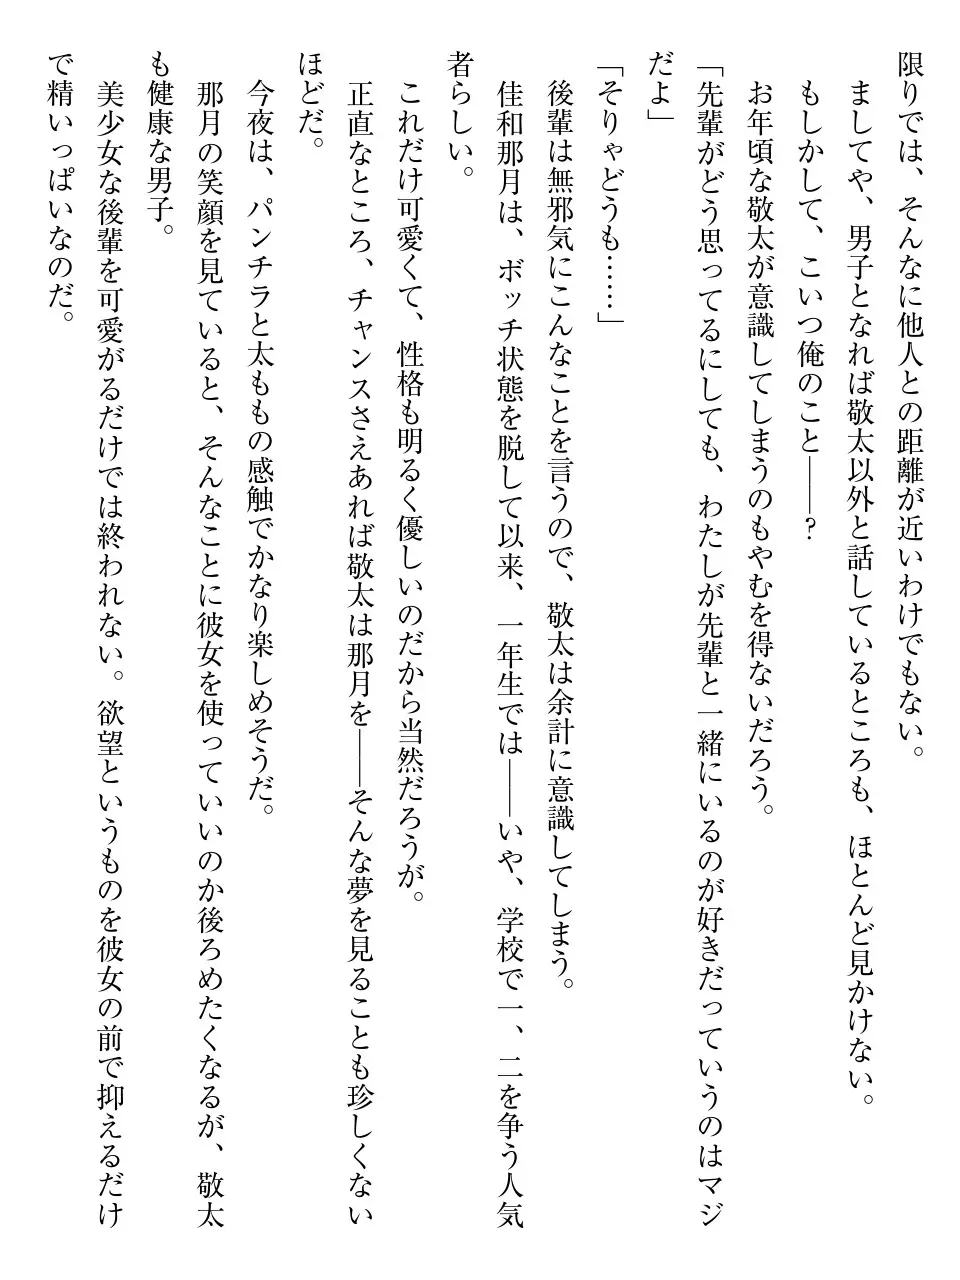 限りでは、そんなに他人との距離が近いわけでもない。
ましてや、男子となれば敬太以外と話しているところも、ほとんど見かけない。
もしかして、こいつ俺のこと――？
お年頃な敬太が意識してしまうのもやむを得ないだろう。
「先輩がどう思ってるにしても、わたしが先輩と一緒にいるのが好きだっていうのはマジ
だよ」
「そりゃどうも……」
後輩は無邪気にこんなことを言うので、敬太は余計に意識してしまう。
佳和那月は、ボッチ状態を脱して以来、一年生では――いや、学校で一、二を争う人気
者らしい。
これだけ可愛くて、性格も明るく優しいのだから当然だろうが。
正直なところ、チャンスさえあれば敬太は那月を――そんな夢を見ることも珍しくない
ほどだ。
今夜は、パンチラと太ももの感触でかなり楽しめそうだ。
那月の笑顔を見ていると、そんなことに彼女を使っていいのか後ろめたくなるが、敬太
も健康な男子。
美少女な後輩を可愛がるだけでは終われない。欲望というものを彼女の前で抑えるだけ
で精いっぱいなのだ。